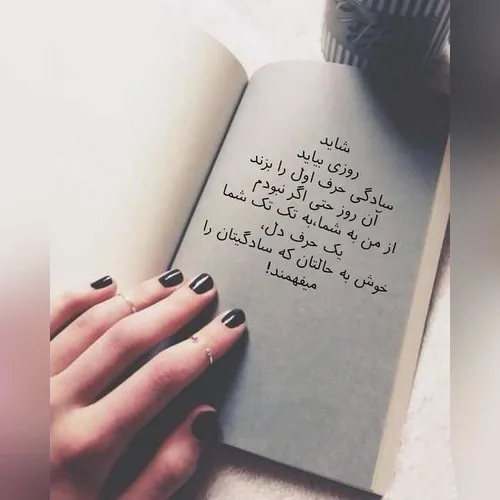 شاید
روزی بیاید
سادگی حرف اول را بزند
آن روز حتی اگر نبودم
از من به شما،به تک تک شما
یک حرف دل،
خوش به حالتان که سادگیتان را
میفهمند!